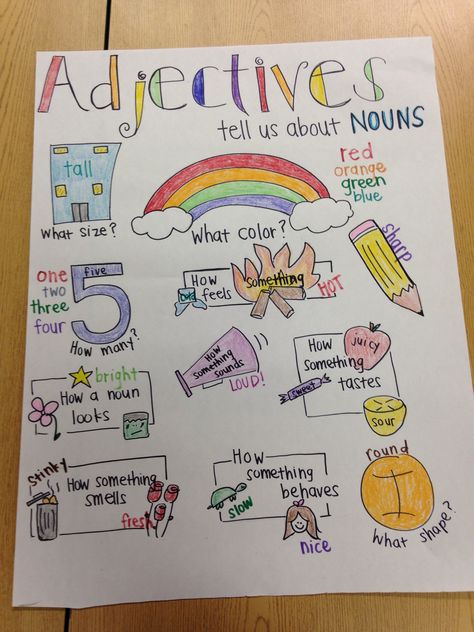 Adjectives
tell us about NOUNS
tall
What size?
What color?
red
orange
green
blue
sharp
one
two
three
four
five
5
How many?
How
something
feels
cold
HOT
bright
How a noun
looks
How
something
sounds
LOUD!
How
something
tastes
juicy
sweet
sour
stinky
How something
smells
fresh
How
something
behaves
slow
nice
round
I
What shape?